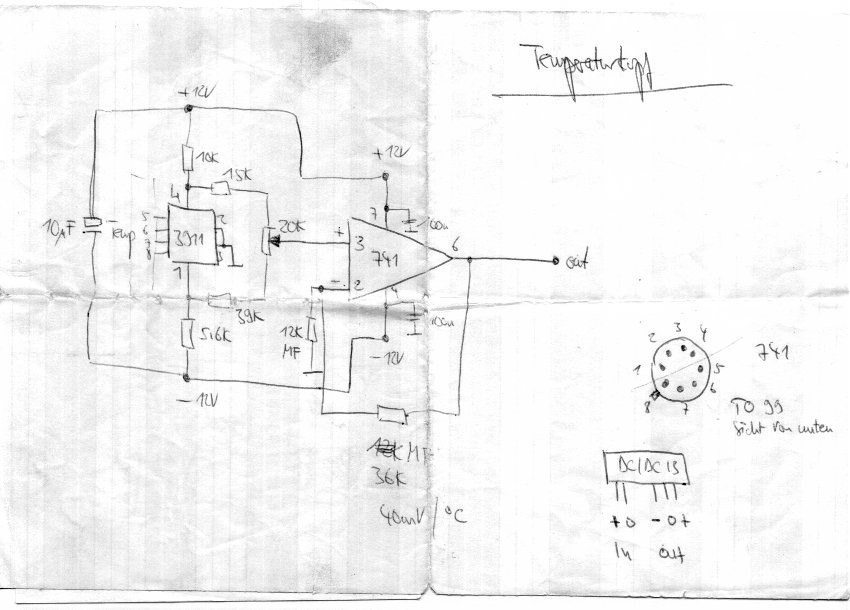 Temperaturkopf
+12V
10K
15K
+12V
4
7
100n
10µF
Temp
5
6
7
8
3911
2
3
1
20K
+
3
741
6
out
-
2
4
100n
39K
5,6K
12K
MF
-12V
-12V
MF
36K
40mV/°C
1
2
3
4
5
6
7
8
741
TO 99
Sicht von unten
DC/DC 13
+0 -0+
In out